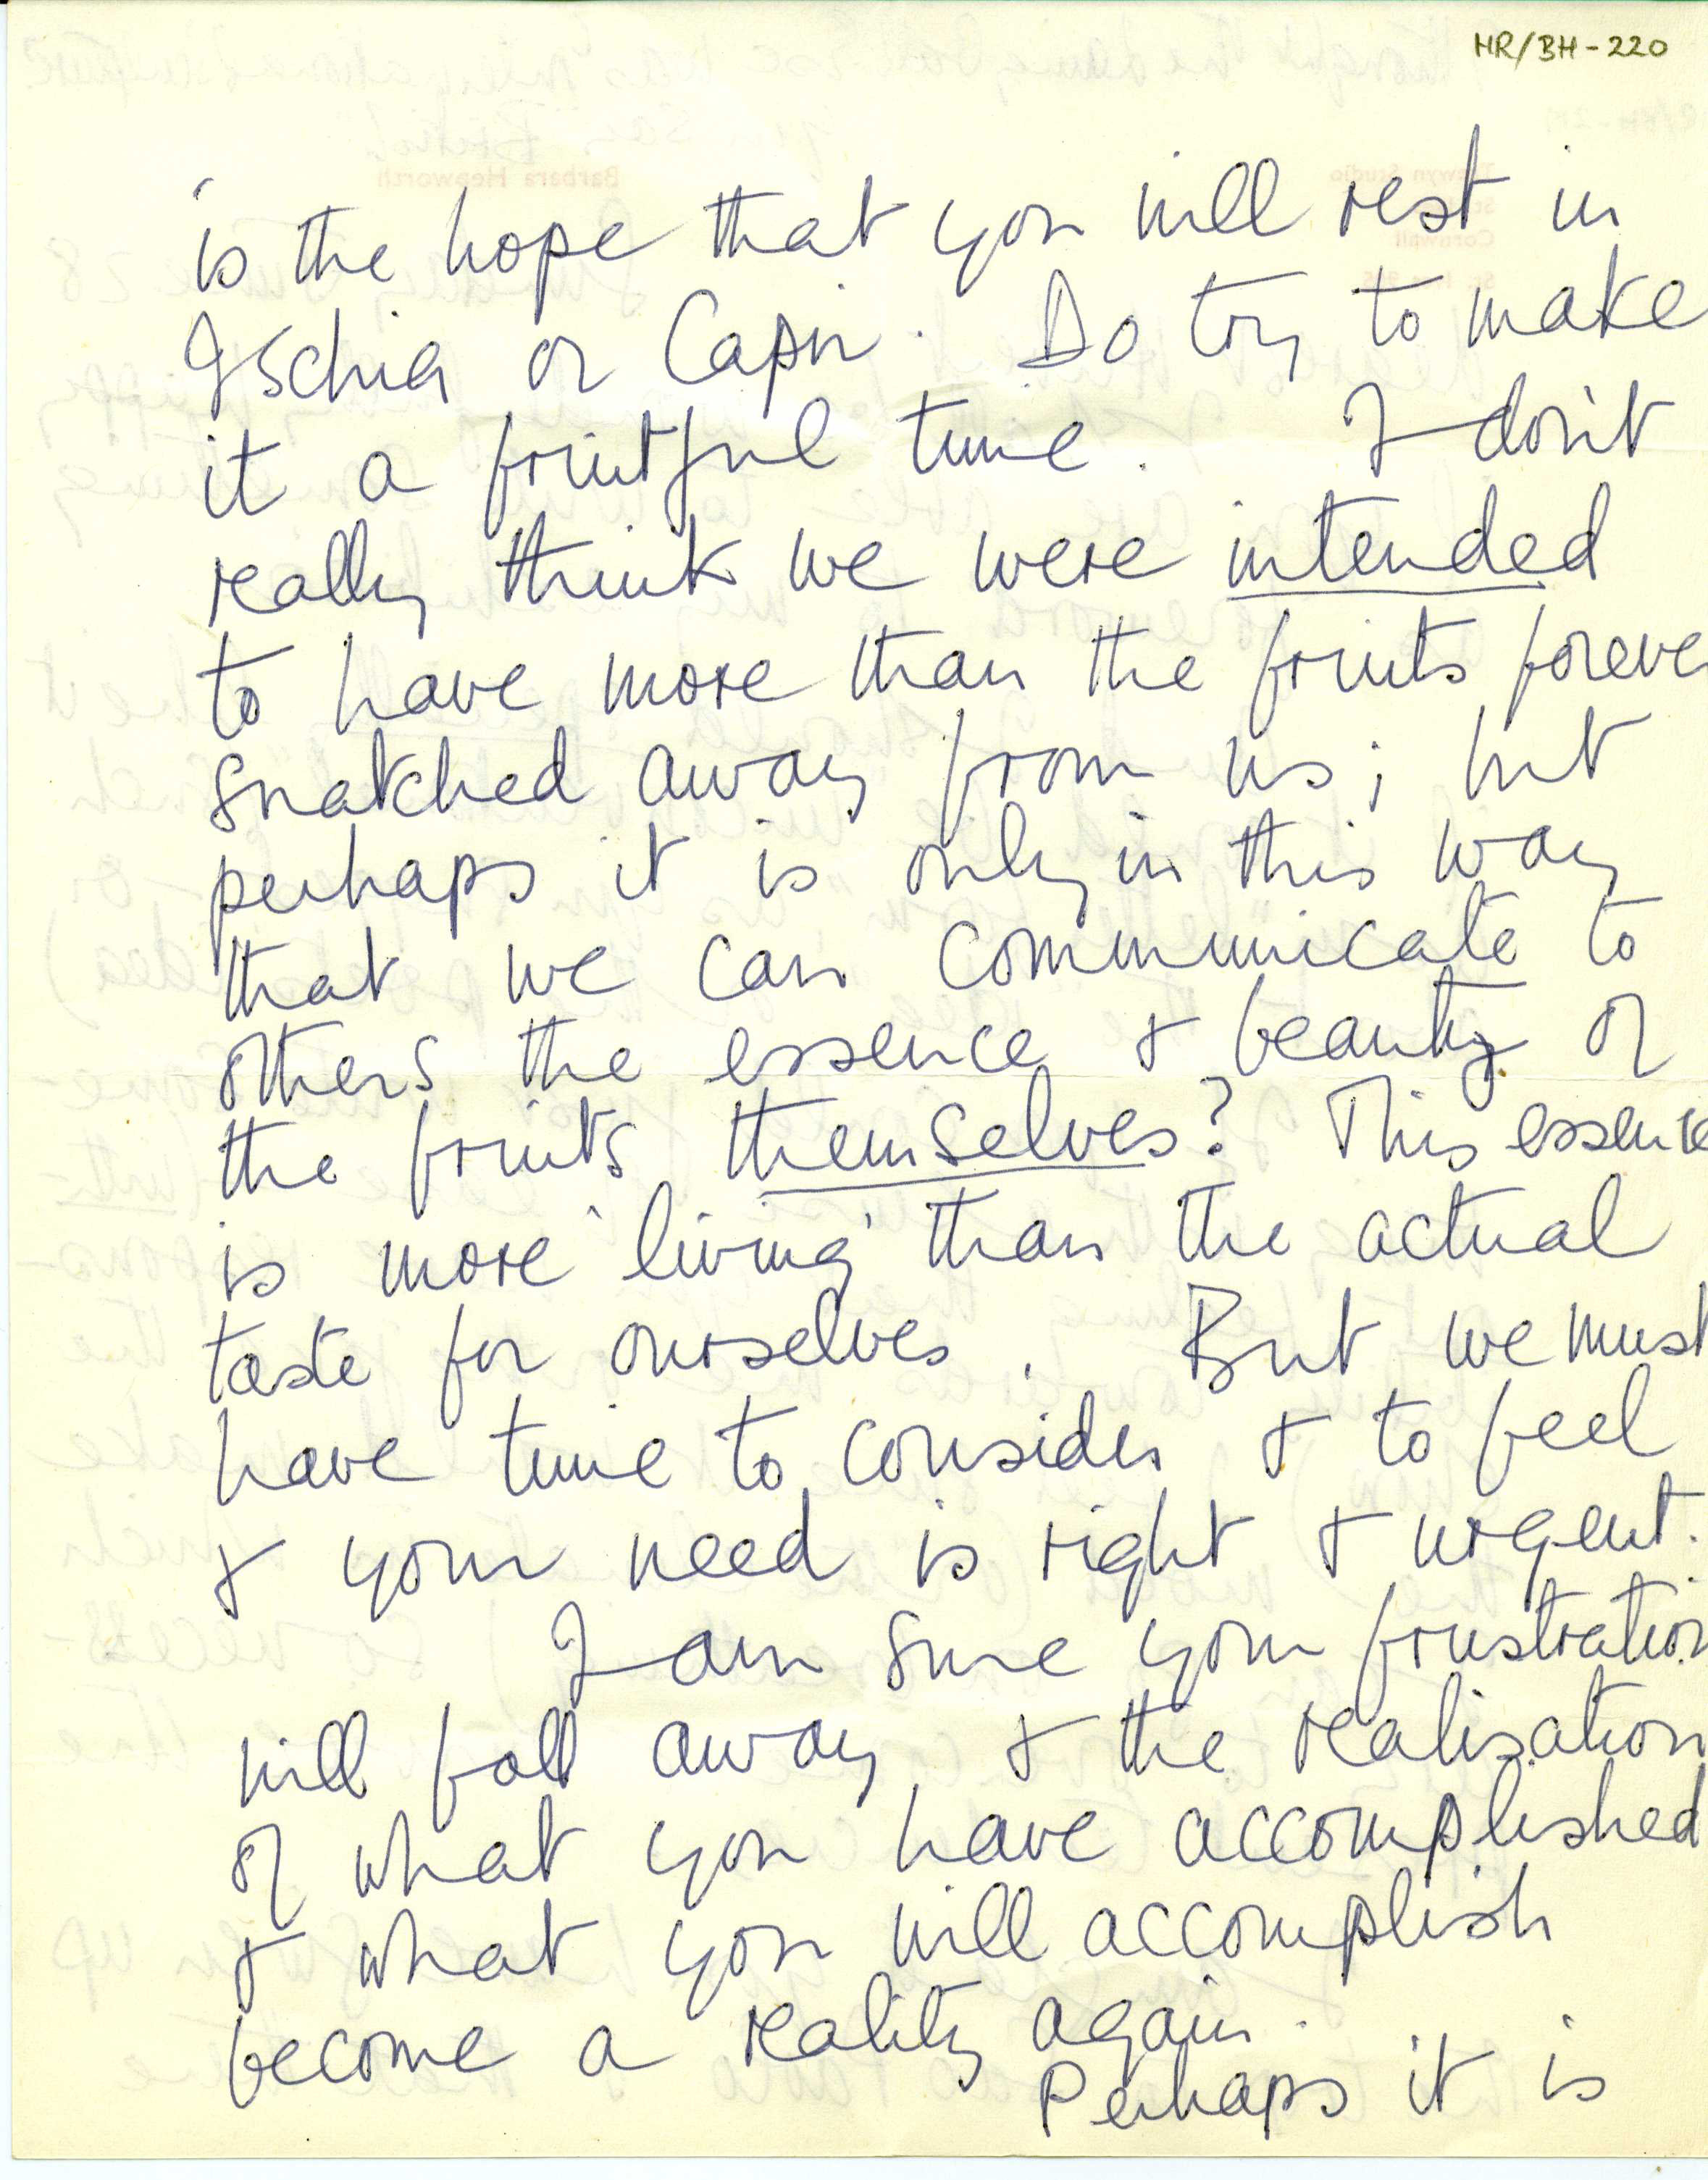 HR/BH-220
is the hope that you will rest in
Ischia or Capri. Do try to make
it a fruitful time. I don't
really think we were intended
to have more than the fruits forever
snatched away from us; but
perhaps it is only in this way
that we can communicate to
others the essence & beauty of
the fruits themselves? This essence
is more 'living' than the actual
taste for ourselves. But we must
have time to consider & to feel
& your need is right & urgent.
I am sure your frustration
will fall away & the realisation
of what you have accomplished
& what you will accomplish
become a reality again.
Perhaps it is